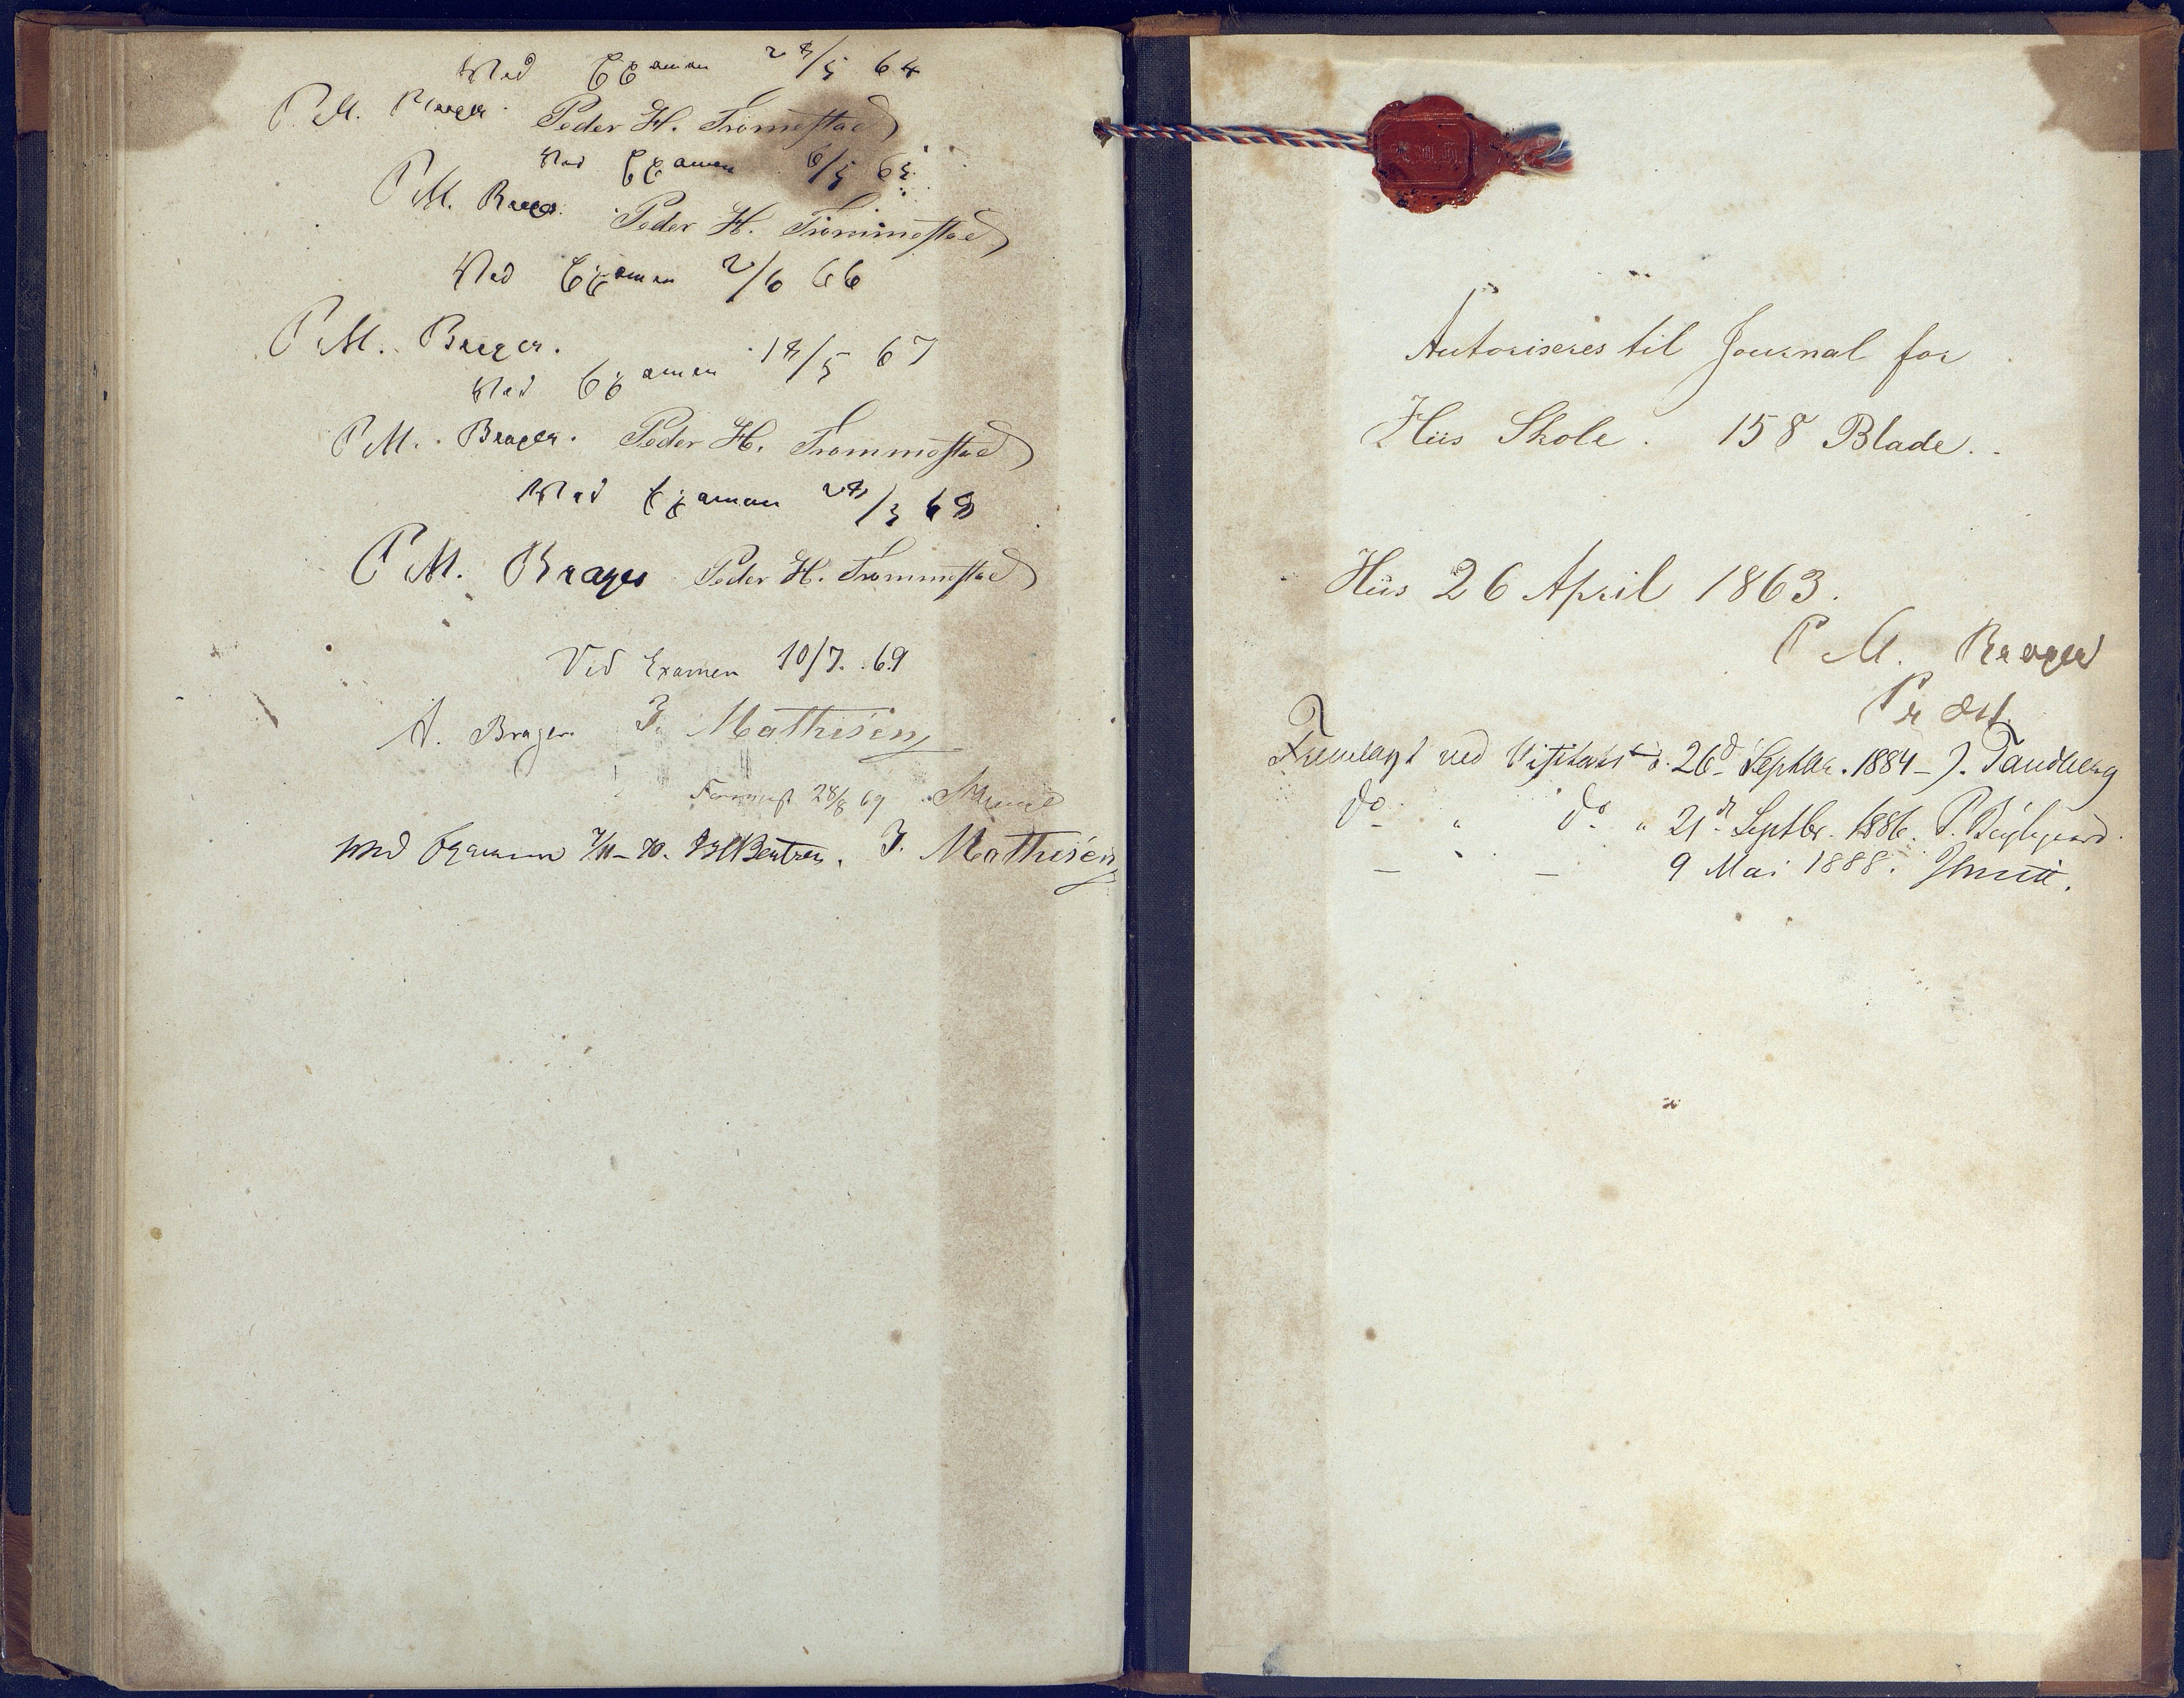 Ved Examen 28/5 64
P. M. Brager. Peder H. Trommestad
Ved Examen 6/5 65.
P. M. Brager. Peder H. Trommestad
Ved Examen 2/6 66
P. M. Brager.
Ved Examen 18/5 67
P. M. Brager. Peder H. Trommestad
Ved Examen 28/3 68
P. M. Brager Peder H. Trommestad
Ved Examen 10/7. 69
A. Brager. J. Mathisen
28/8 69
ved Examen 7/11-70. Bentzen. J. Mathisen
Autoriseres til Journal for
Hiis Skole. 158 Blade.
Hiis 26 April 1863.
P. M. Brager
Fremlagt ved Visitats d. 26d Septbr. 1884 - J. Tandberg
do " do " 21d Septbr. 1886. P.
— — 9 Mai 1888. Smitt.